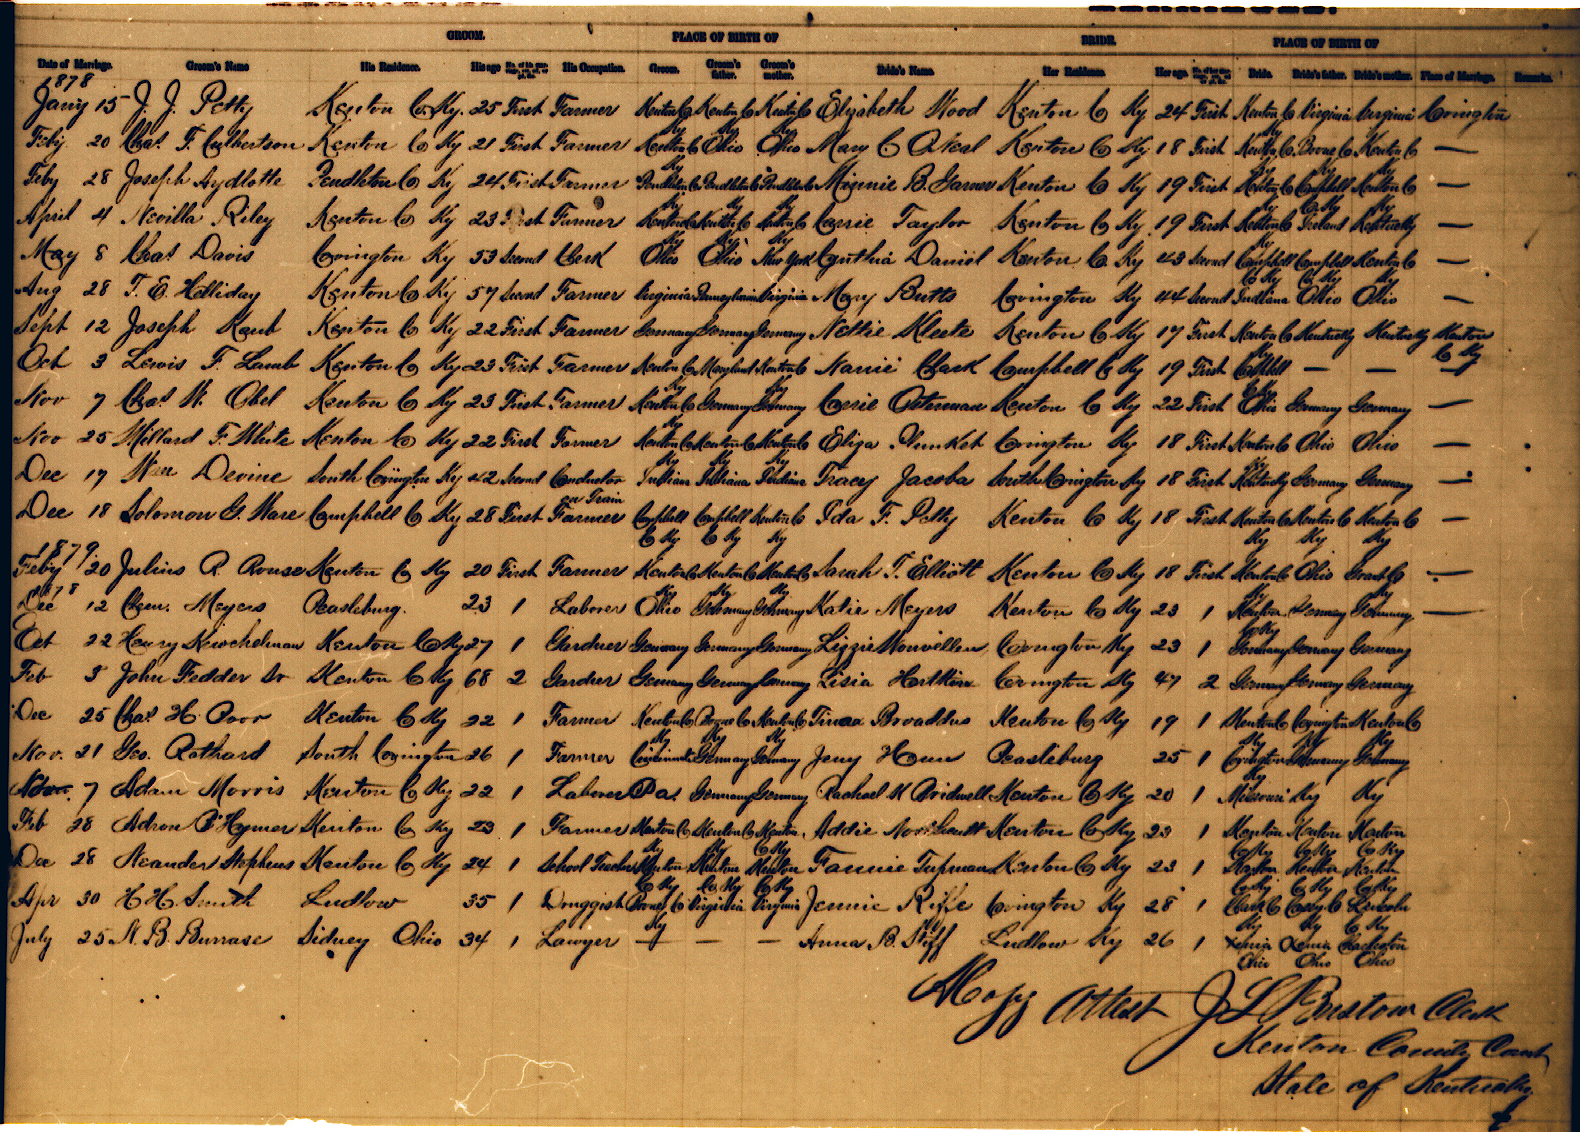 GROOM. PLACE OF BIRTH OF BRIDE. PLACE OF BIRTH OF
Date of Marriage. Groom's Name His Residence. His age His Occupation. Groom. Groom's father. Groom's mother. Bride's Name. Her Residence. Her age. Bride. Bride's father. Bride's mother. Place of Marriage. Remarks.
1878
Jany 15 J. J. Petty Kenton Co Ky. 25 First Farmer Kenton Co Ky Kenton Co Ky Kenton Co Ky Elizabeth Wood Kenton Co Ky 24 First Kenton Co Ky Virginia Virginia Covington
Feby. 20 Chas. F. Culbertson Kenton Co Ky 21 First Farmer Kenton Co Ky Ohio Ohio Mary C Kenton Co Ky 18 First Kenton Co Ky Boone Co Kenton Co —
Feby 28 Joseph Aydlotte Pendleton Co Ky 24 First Farmer Pendleton Co Ky Pendleton Co Ky Pendleton Co Ky Minnie B. Garner Kenton Co Ky 19 First Kenton Co Ky Campbell Co Ky Kenton Co Ky —
April 4 Nevilla Riley Kenton Co Ky 23 First Farmer Kenton Co Ky Kenton Co Ky Kenton Co Ky Carrie Taylor Kenton Co Ky. 19 First Kenton Co Ky Ireland Kentucky —
May 8 Chas Davis Covington Ky 53 Second Clerk Ohio Ohio New York Cynthia Daniel Kenton Co. Ky 43 Second Campbell Co Ky Campbell Co Ky Kenton Co Ky —
Aug 28 T. E. Holliday Kenton Co Ky 57 Second Farmer Virginia Pennsylvania Virginia Mary Butts Covington Ky 44 Second Indiana Ohio Ohio —
Sept 12 Joseph Kenton Co Ky 22 First Farmer Germany Germany Germany Nettie Kleete Kenton Co Ky 17 First Kenton Co Ky Kentucky Kentucky Kenton Co Ky
Oct 3 Lewis F. Lamb Kenton Co Ky 23 First Farmer Kenton Co Ky Maryland Kenton Co Ky Nannie Clark Campbell Co Ky 19 First Campbell Co Ky — — —
Nov 7 Chas W. Obel Kenton Co Ky 23 First Farmer Kenton Co Ky Germany Germany Carrie Osterman Kenton Co Ky 22 First Ohio Germany Germany —
Nov 25 Millard F. White Kenton Co Ky 22 First Farmer Kenton Co Ky Kenton Co Ky Kenton Co Ky Eliza Plunket Covington Ky 18 First Kenton Co Ky Ohio Ohio —
Dec 17 Wm Devine South Covington Ky 42 Second Conductor on Train Indiana Indiana Indiana Tracey Jacobs South Covington Ky 18 First Kentucky Germany Germany —
Dec 18 Solomon G. Ware Campbell Co Ky 28 First Farmer Campbell Co Ky Campbell Co Ky Kenton Co Ky Ida F. Petty Kenton Co Ky 18 First Kenton Co Ky Kenton Co Ky Kenton Co Ky —
1879.
Feby 20 Julius R. Rouse Kenton Co Ky 20 First Farmer Kenton Co Ky Kenton Co Ky Kenton Co Ky Sarah T. Elliott Kenton Co Ky 18 First Kenton Co Ky Ohio Grant Co Ky —
1878
Dec 12 Meyers Peasleburg. 23 1 Laborer Ohio Germany Germany Katie Meyers Kenton Co Ky 23 1 Kenton Co Ky Germany Germany —
Oct 22 Henry Kenton Co Ky 27 1 Gardner Germany Germany Germany Lizzie Covington Ky 23 1 Germany Germany Germany
Feb 3 John Fedder Sr Kenton Co Ky 68 2 Gardner Germany Germany Germany Covington Ky 47 2 Germany Germany Germany
Dec 25 Chas H. Poor Kenton Co Ky 22 1 Farmer Kenton Co Ky Boone Co Ky Kenton Co Ky Broaddus Kenton Co Ky 19 1 Kenton Co Ky Covington Ky Kenton Co Ky
Nov. 21 Geo. Rothard South Covington 26 1 Farmer Cincinnati Germany Germany Jeny Peasleburg 25 1 Covington Ky Germany Germany
Nov. 7 Adam Morris Kenton Co Ky 22 1 Laborer Pa. Germany Germany Rachael K Bridwell Kenton Co Ky 20 1 Missouri Ky Ky
Feb 28 Kenton Co Ky 23 1 Farmer Kenton Co Ky Kenton Co Ky Kenton Co Ky Addie Kenton Co Ky 23 1 Kenton Co Ky Kenton Co Ky Kenton Co Ky
Dec 28 Neander Stephens Kenton Co Ky 24 1 School Teacher Kenton Co Ky Kenton Co Ky Kenton Co Ky Fannie Tupman Kenton Co Ky 23 1 Kenton Co Ky Kenton Co Ky Kenton Co Ky
Apr 30 H. H. Smith Ludlow 35 1 Druggist Boone Co Ky Virginia Virginia Jennie Riffe Covington Ky 28 1 Clark Co Ky Casey Co Ky Lincoln Co Ky
July 25 N. B. Burrase Sidney Ohio 34 1 Lawyer — — — Anna B. Stiff Ludlow Ky 26 1 Xenia Ohio Xenia Ohio Ohio
A Copy Attest J L Clerk
Kenton County Court
State of Kentucky